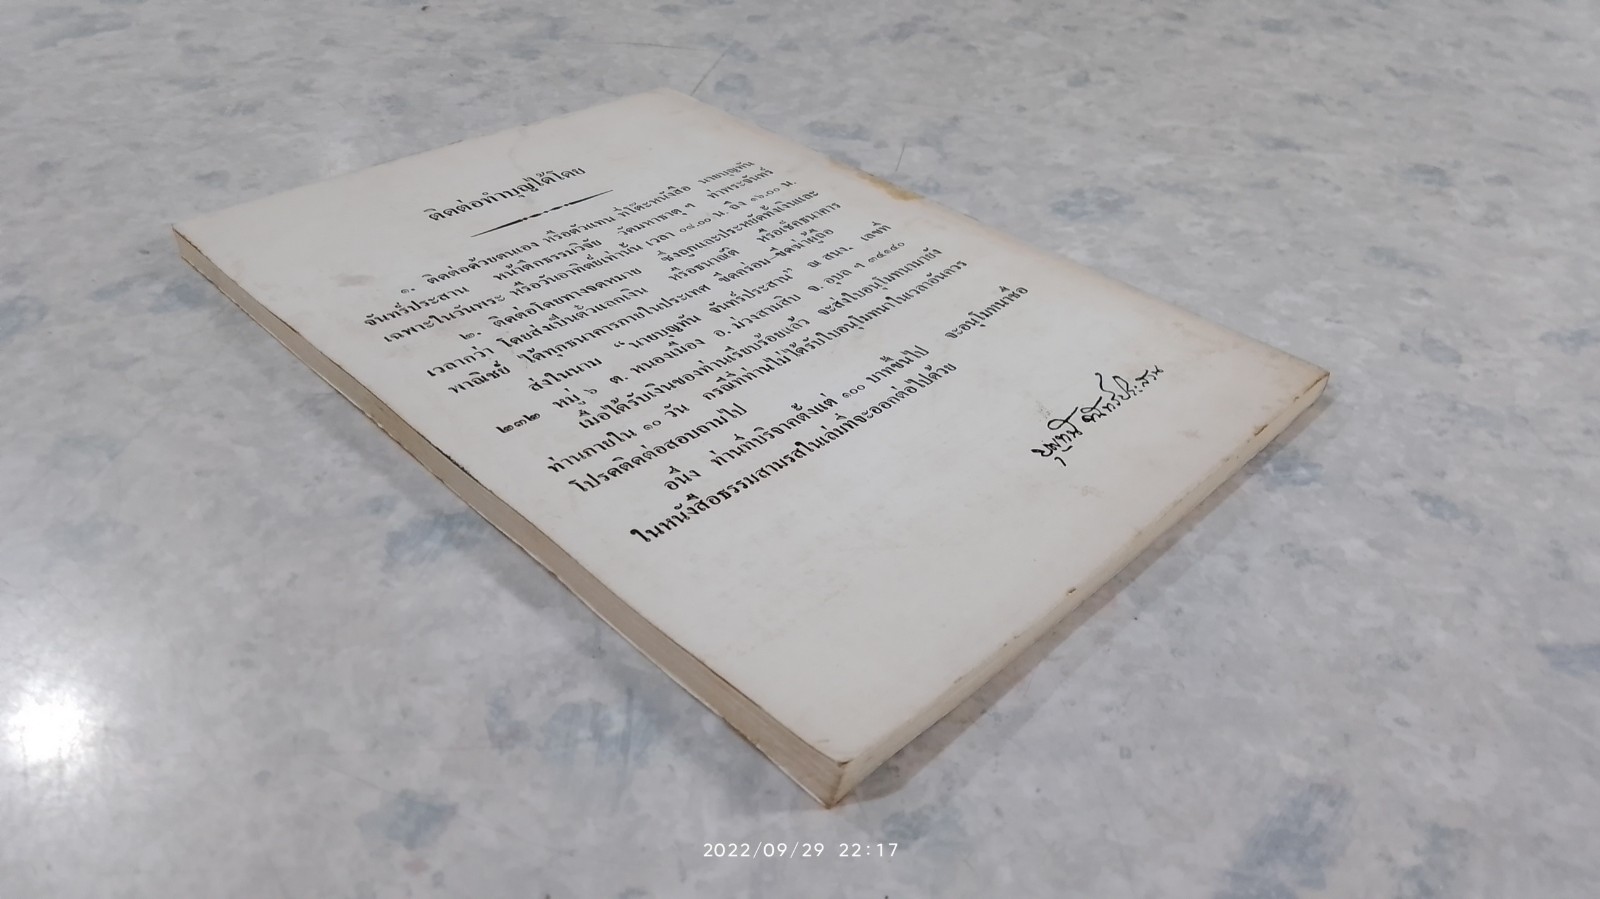 ติดต่อทำบุญได้โดย
๑. ติดต่อด้วยตนเอง หรือตัวแทน ที่โต๊ะหนังสือ นายบุญทัน
จันทร์ประสาน หน้าตึกธรรมวิจัย วัดมหาธาตุ ฯ ท่าพระจันทร์
เฉพาะในวันพระ หรือวันอาทิตย์เท่านั้น เวลา ๐๘.๐๐ น. ถึง ๑๖.๐๐ น.
๒. ติดต่อโดยทางจดหมาย ซึ่งถูกและประหยัดทั้งเงินและ
เวลากว่า โดยส่งเป็นตั๋วแลกเงิน หรือธนาณัติ หรือเช็คธนาคาร
พาณิชย์ ได้ทุกธนาคารภายในประเทศ ขีดคร่อม-ขีดฆ่าผู้ถือ
ส่งในนาม “นายบุญทัน จันทร์ประสาน” ณ สนง. เลขที่
๒๓๒ หมู่ ๖ ต. หนองเมือง อ. ม่วงสามสิบ จ. อุบล ฯ ๓๔๑๔๐
เมื่อได้รับเงินของท่านเรียบร้อยแล้ว จะส่งใบอนุโมทนามายัง
ท่านภายใน ๑๐ วัน กรณีที่ท่านไม่ได้รับใบอนุโมทนาในเวลาอันควร
โปรดติดต่อสอบถามไป
อนึ่ง ท่านที่บริจาคตั้งแต่ ๑๐๐ บาทขึ้นไป จะอนุโมทนาชื่อ
ในหนังสือธรรมสามรสในเล่มที่จะออกต่อไปด้วย
บุญทัน จันทร์ประสาน
2022/09/29 22:17